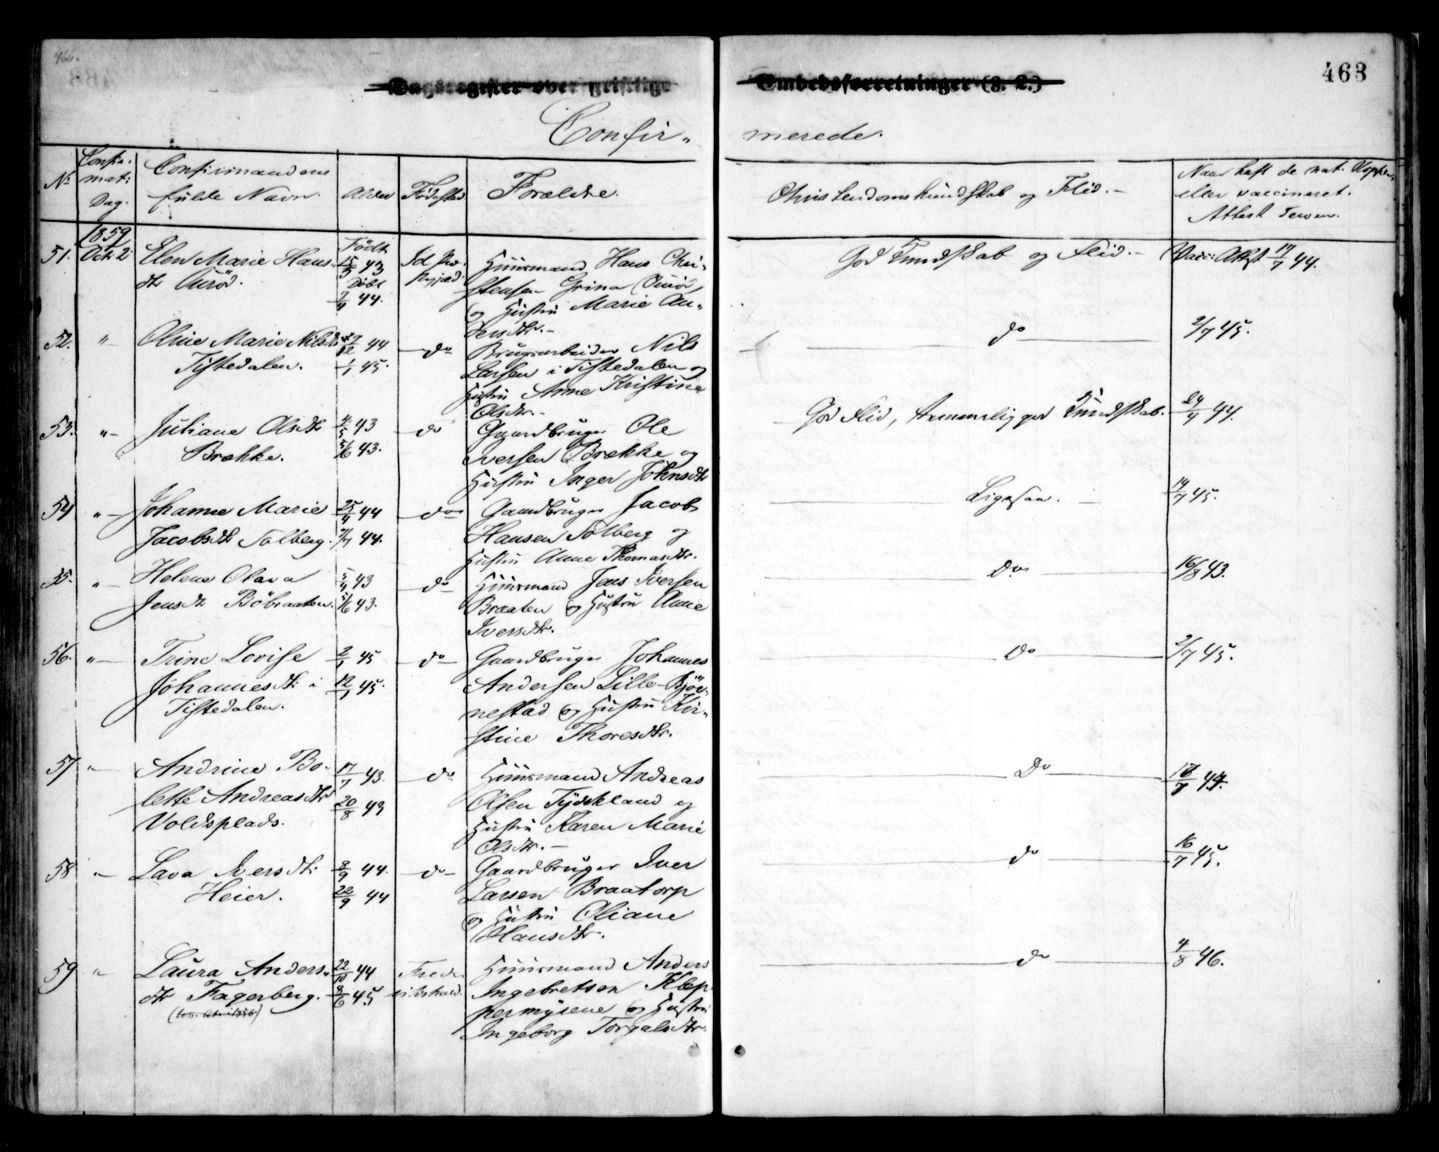 466.
463
Dagsregister over geistlige Embedsforretninger (§. 2.)
Confir- merede.
No
Confir-
mat:
Dag.
Confirmandens
fulde Navn
Alder
Fødested
Forældre.
Christendomskundskab og Flid.
Naar haft de nat. Kopper,
eller vaccineret.
Attest Datum.
1859
Octr 2
Født
51.
Elen Marie Hans-
dtr
15/3 43
Døbt
7/4 44.
Huusmand Hans Chri-
stensen
og Hustru Marie An-
dersdtr.
God Kundskab og Flid.
Vacc: Attest 17/7 44.
52.
"
Oline Marie Nilsdtr
Tistedalen.
12 44
1 45.
do
Brugsarbeider Nils
Larsen i Tistedalen og
Hustru Anne Kristine
Olsdtr.
do
2/7 45.
53.
"
Juliane Olsdtr
Brække.
4/5 43
5/6 43.
do
Gaardbruger Ole
Iversen Brække og
Hustru Inger Johnsdtr
God Flid, temmelig god Kundskab.
24/7 44.
54
"
Johanne Marie
Jacobsdtr Solberg.
25/4 44
7/7 44.
do
Gaardbruger Jacob
Hansen Solberg og
Hustru Anne Thomasdtr.
Ligesaa.
14/7 45.
55.
"
Helene Olava
Jensdtr Böbraaten.
5/4 43
5/6 43.
do
Huusmand Jens Iversen
Braaten og Hustru Anne
Iversdtr.
do
16/8 43.
56.
"
Trine Lovise
Johannesdtr i
Tistedalen.
2/1 45
12/1 45.
do
Gaardbruger Johannes
Andersen Lille-Bjør-
nestad og Hustru Kir-
stine Thoresdtr.
do
2/7 45.
57
"
Andrine Bo-
lette Andreasdtr
Voldsplads.
17/7 43.
20/8 43
do
Huusmand Andreas
Olsen Tydskland og
Hustru Karen Marie
Olsdtr.
do
17/7 44.
58
"
Lava Iversdtr
Heier.
2/9 44.
22/9 44
do
Gaardbruger Iver
Larsen Braatorp
og Hustru Oliane
Hansdtr.
do
16/7 45.
59
"
Laura Anders-
dtr Fagerberg.
22/10 44
8/6 45
Frede-
rikshald.
Huusmand Anders
Ingebretsen Klep-
permyrene og Hustru
Ingeborg Torgalsdtr.
do
4/8 46.